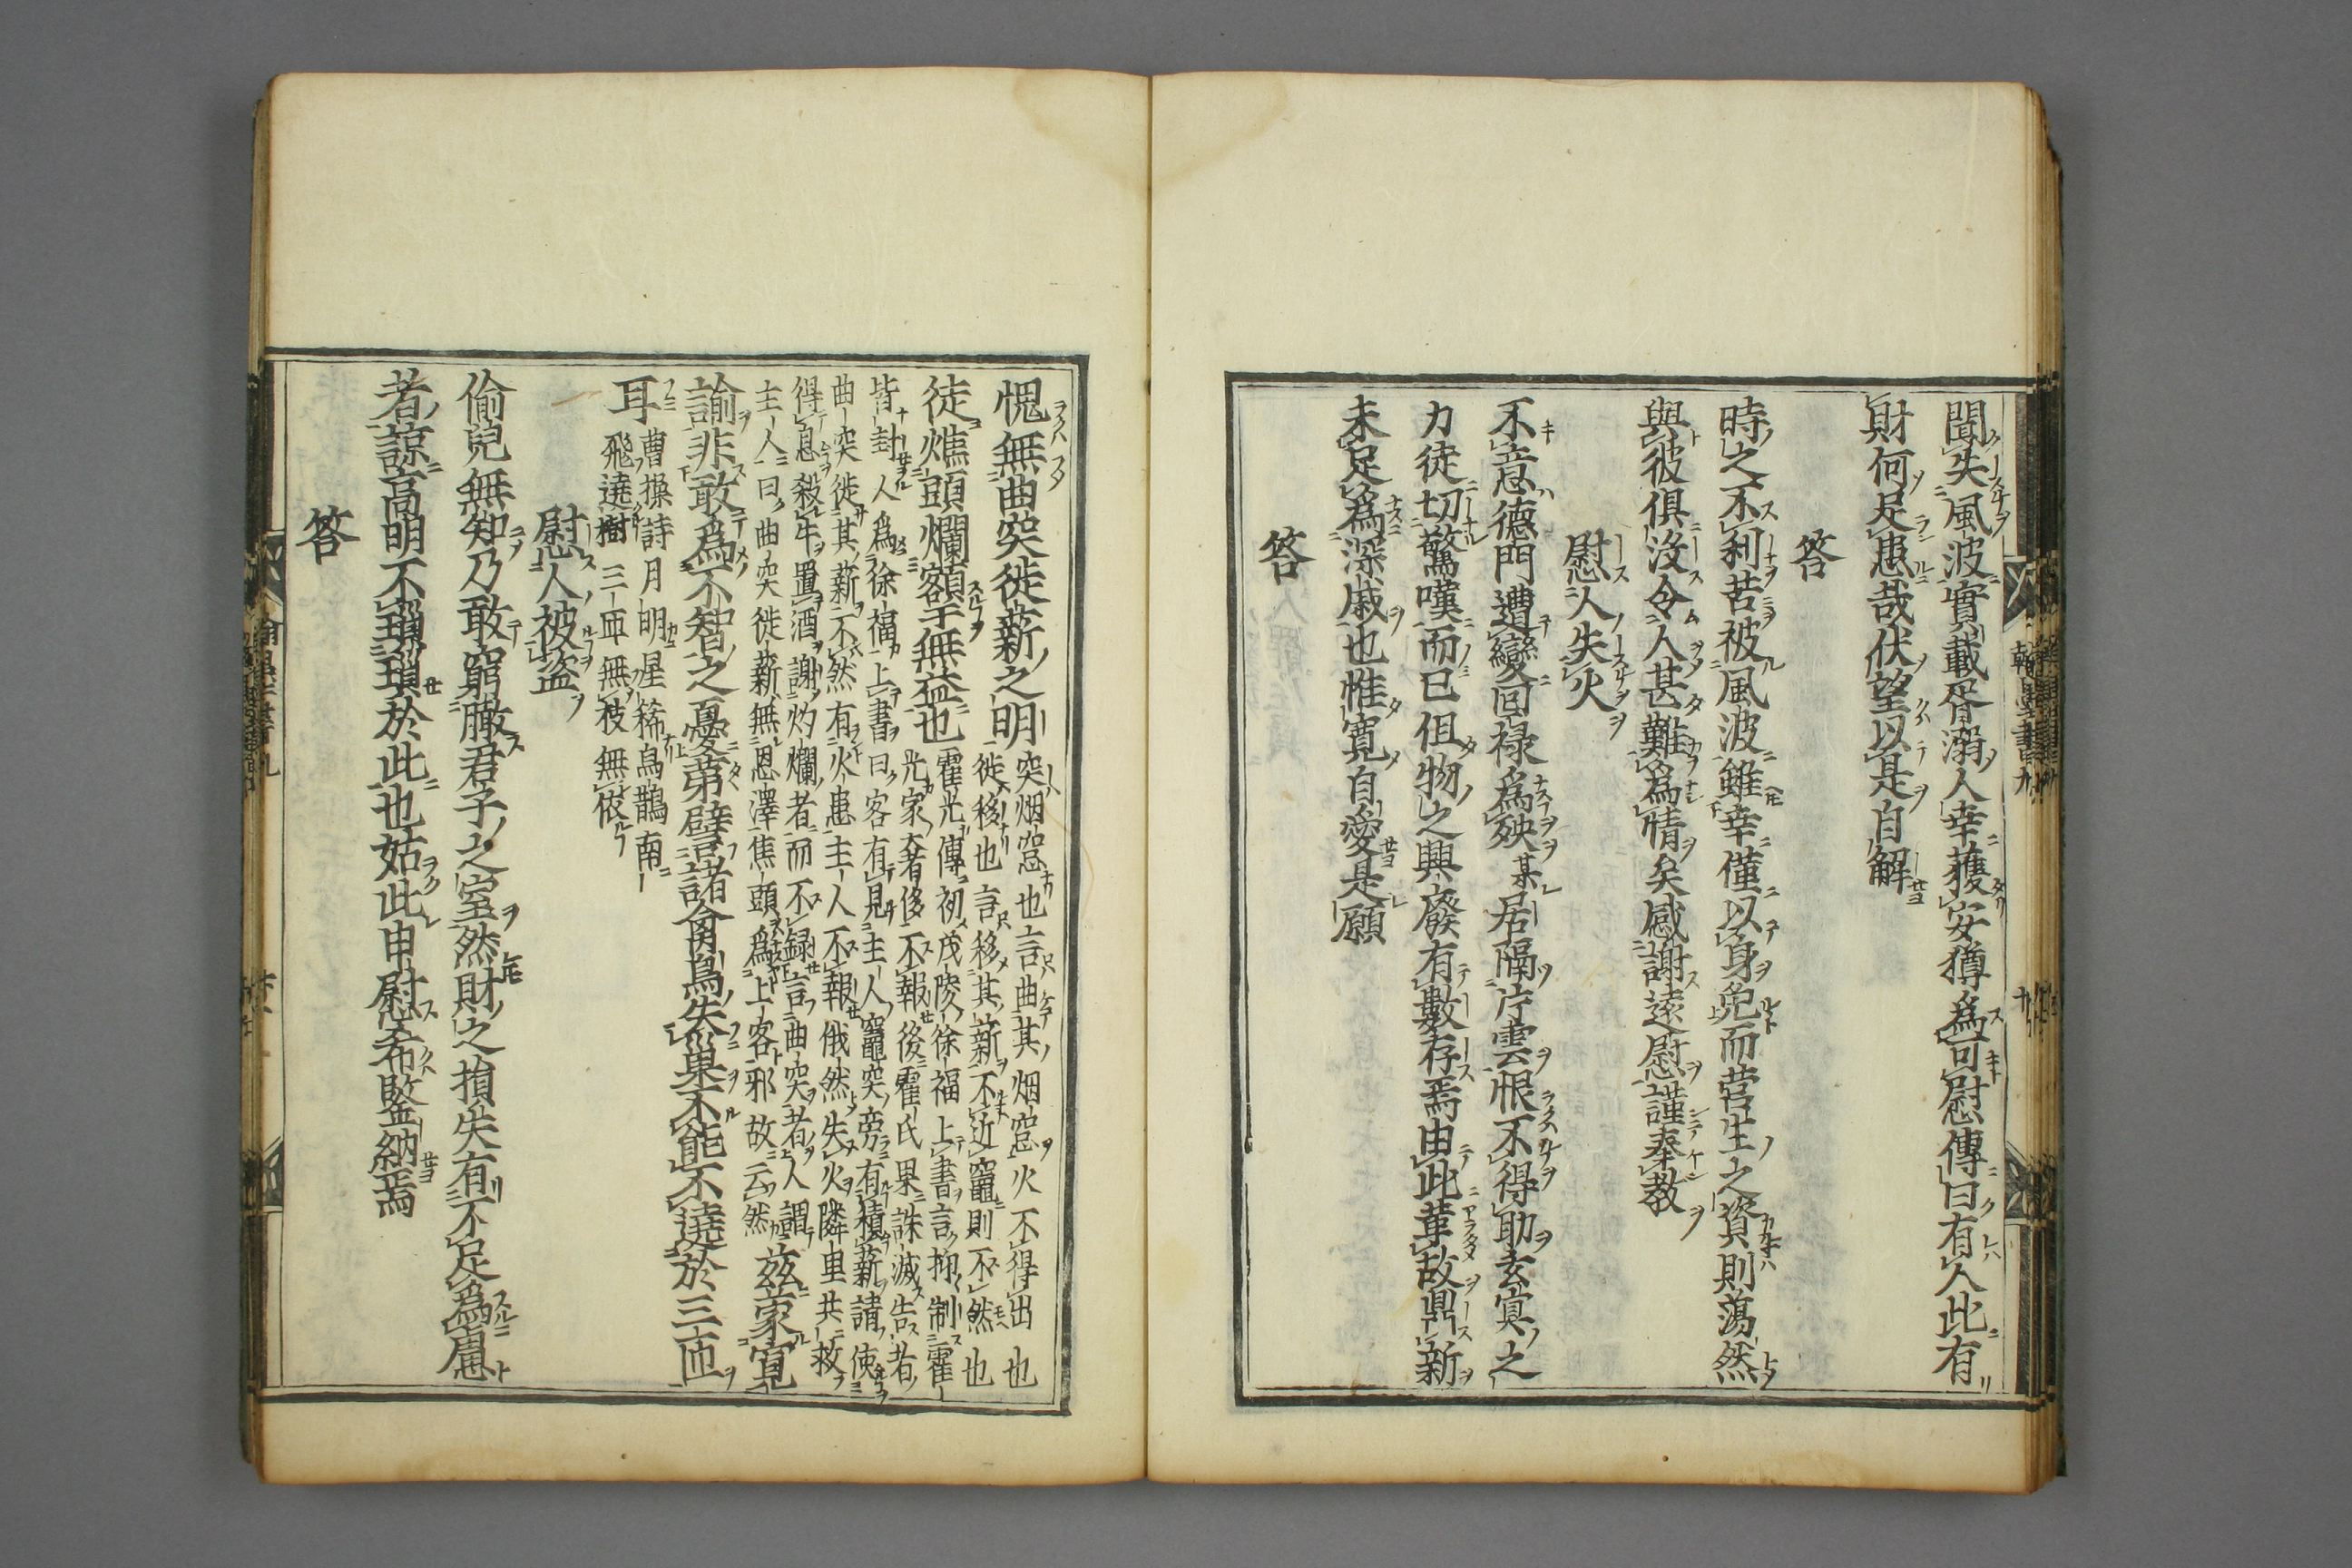 聞失風波實載胥溺人幸獲安猶爲可慰傳曰有人此有
財何足患哉伏望以是自解
答
時之不利苦被風波雖幸僅以身免而營生之資則蕩然
與彼俱沒令人甚難爲情矣感謝遠慰謹奉教
慰人失火
不意德門遭變回祿爲殃某居隔片雲恨不得助玄㝠之
力徒切驚嘆而已但物之興廢有數存焉由此革故鼎新
未足爲深戚也惟寬自愛是願
答
愧無曲突徙薪之明突烟窓也言曲其烟窓火不得出也
徙移也言移其薪不近竈則不然也
徒燋頭爛額于無益也霍光傳初茂陵徐福上書言抑制霍
光家奢侈不報後霍氏果誅滅告者
皆封人爲徐福上書曰客有見主人竈突旁有積薪請使
曲突徙其薪不然有火患主人不報俄然失火隣里共救
得息殺牛置酒謝灼爛者而不録言曲突者人謂
主人曰曲突徙薪無恩澤焦頭爲上客邪故云然茲蒙寬
諭非敢爲不智之憂第譬諸禽鳥失巢不能不遶於三匝
耳曹操詩月明星稀烏鵲南
飛遶樹三匝無枝無依
慰人被盜
偷兒無知乃敢窮瞰君子之室然財之損失有不足爲慮
者諒高明不瑣瑣於此也姑此申慰希鑒納焉
答